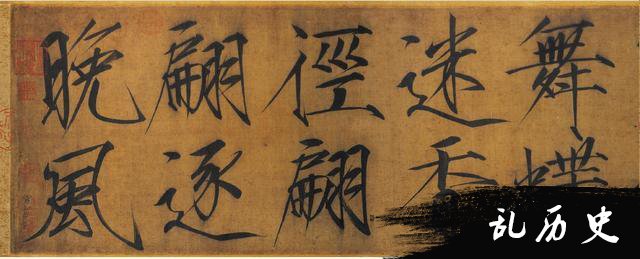 舞蝶
迷香
徑翩
翩逐
晚風
乱历史